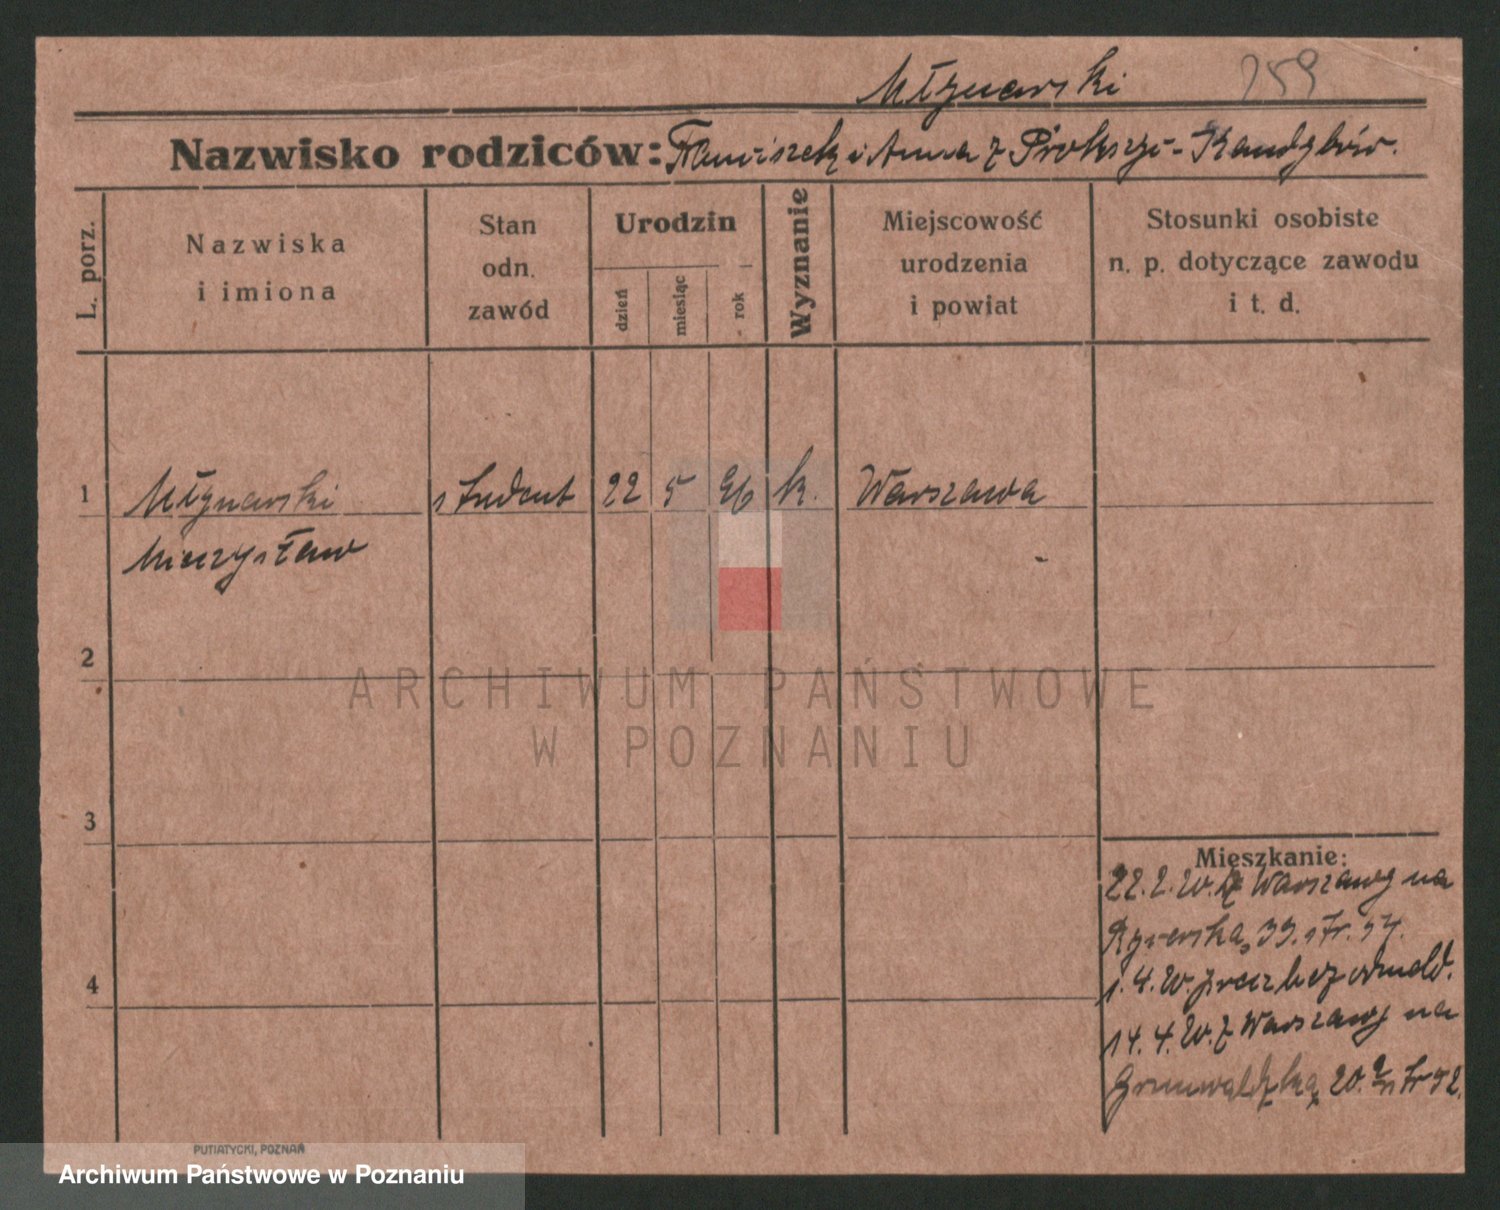 Młynarski 159
Nazwisko rodziców: Franciszek i Anna z
L. porz.
Nazwiska
i imiona
Stan
odn.
zawód
Urodzin
dzień
miesiąc
rok
Wyznanie
Miejscowość
urodzenia
i powiat
Stosunki osobiste
n. p. dotyczące zawodu
i t. d.
1 Młynarski student 22 5 96 k. Warszawa
Mieczysław
2
3
4
Mieszkanie:
22.2.20. z Warszawy na
39. str. 57.
1.4.20. precz bez odmeld.
14.4.20. z Warszawy na
Grunwaldzką 20. str 52.
ARCHIWUM PAŃSTWOWE
W POZNANIU
PUTIATYCKI, POZNAŃ
Archiwum Państwowe w Poznaniu